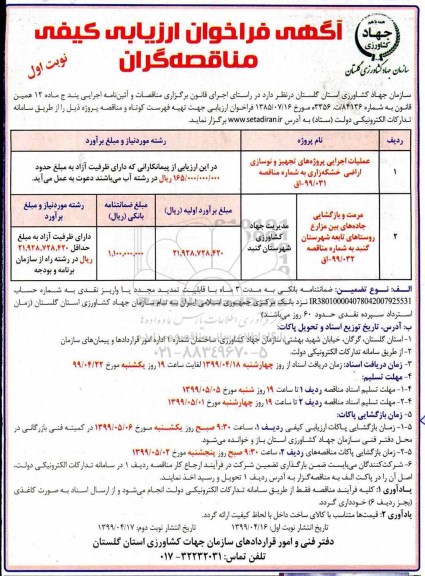 آگهی فراخوان ارزیابی کیفی
مناقصه‌گران
نوبت اول
جهاد
کشاورزی
سازمان جهاد کشاورزی گلستان
سازمان جهاد کشاورزی استان گلستان درنظر دارد در راستای اجرای قانون برگزاری مناقصات و آئین‌نامه اجرایی بند ج ماده ۱۲ همین
قانون به شماره ۸۴۱۳۶/ت ۳۳۵۶ه‍ مورخ ۱۳۸۵/۰۷/۱۶ فراخوان ارزیابی جهت تهیه فهرست کوتاه و مناقصه پروژه ذیل را از طریق سامانه
تدارکات الکترونیکی دولت (ستاد) به آدرس www.setadiran.ir برگزار نماید.
ردیف
نام پروژه
رشته موردنیاز و مبلغ برآورد
۱
عملیات اجرایی پروژه‌های تجهیز و نوسازی
اراضی خشکه‌زاری به شماره مناقصه
۹۹/۰۳۱-ق
در این ارزیابی از پیمانکارانی که دارای ظرفیت آزاد به مبلغ حدود
۱۶۵/۰۰۰/۰۰۰/۰۰۰ ریال در رشته آب می‌باشند دعوت به عمل می‌آید.
۲
مرمت و بازگشایی
جاده‌های بین مزارع
روستاهای تابعه شهرستان
گنبد به شماره مناقصه
۹۹/۰۳۲-ق
مدیریت جهاد
کشاورزی
شهرستان گنبد
مبلغ برآورد اولیه (ریال)
مبلغ ضمانتنامه
بانکی (ریال)
رشته موردنیاز و مبلغ
برآورد
۲۱,۹۲۸,۷۲۸,۴۲۰
۱,۱۰۰,۰۰۰,۰۰۰
دارای ظرفیت آزاد به مبلغ
حداقل ۲۱,۹۲۸,۷۲۸,۴۲۰
ریال در رشته راه از سازمان
برنامه و بودجه
الف: نوع تضمین: ضمانتنامه بانکی به مدت ۳ ماه با قابلیت تمدید مجدد یا واریز نقدی به شماره حساب
IR380100004078042007925531 نزد بانک مرکزی جمهوری اسلامی ایران به نام سازمان جهاد کشاورزی استان گلستان (زمان
استرداد سپرده نقدی حدود ۶۰ روز می‌باشد)
ب: آدرس، تاریخ توزیع اسناد و تحویل پاکات:
۱- استان گلستان، گرگان، خیابان شهید بهشتی، سازمان جهاد کشاورزی، ساختمان شماره ۱ اداره امور قراردادها و پیمان‌های سازمان
۲- از طریق سامانه تدارکات الکترونیکی دولت.
۳- زمان دریافت اسناد: زمان دریافت اسناد از روز چهارشنبه ۱۳۹۹/۰۴/۱۸ لغایت ساعت ۱۹ روز یکشنبه مورخ ۹۹/۰۴/۲۲
۴- مهلت تسلیم:
۱-۴- مهلت تسلیم اسناد مناقصه ردیف ۱ تا ساعت ۱۹ روز شنبه مورخ ۱۳۹۹/۰۵/۰۵
۲-۴- مهلت تسلیم اسناد مناقصه ردیف ۲ تا ساعت ۱۹ روز چهارشنبه مورخ ۱۳۹۹/۰۵/۰۱
۵- زمان بازگشایی پاکات:
۱-۵- زمان بازگشایی پاکات ارزیابی کیفی ردیف ۱، ساعت ۹:۳۰ صبح روز یکشنبه مورخ ۱۳۹۹/۰۵/۰۶ در کمیته فنی بازرگانی در
محل دفتر فنی سازمان جهاد کشاورزی استان باز و خوانده می‌شود.
۲-۵- زمان بازگشایی پاکات مناقصه‌های ردیف ۲، ساعت ۹:۳۰ صبح روز پنجشنبه مورخ ۱۳۹۹/۰۵/۰۲
۶- شرکت‌کنندگان می‌بایست ضمن بارگذاری تضمین شرکت در فرآیند ارجاع کار مناقصه ردیف ۱ در سامانه تدارکات الکترونیکی دولت،
اصل آن را در پاکت الف به مناقصه‌گزار به آدرس ردیف ۱ تحویل و رسید اخذ نمایند.
یادآوری ۱: کلیه فرآیند مناقصه فقط از طریق سامانه تدارکات الکترونیکی دولت انجام می‌شود و از ارسال اسناد به صورت کاغذی
(بجز ردیف ۶) خودداری گردد.
یادآوری ۲: قیمت‌ها متناسب با کالای ساخت داخل با لحاظ کیفیت ارائه گردد.
تاریخ انتشار نوبت اول: ۱۳۹۹/۰۴/۱۶
تاریخ انتشار نوبت دوم: ۱۳۹۹/۰۴/۱۷
دفتر فنی و امور قراردادهای سازمان جهات کشاورزی استان گلستان
تلفن تماس: ۳۲۲۳۲۰۳۱-۰۱۷
۰۲۱-۸۸۳۴۹۶۷۰-۵